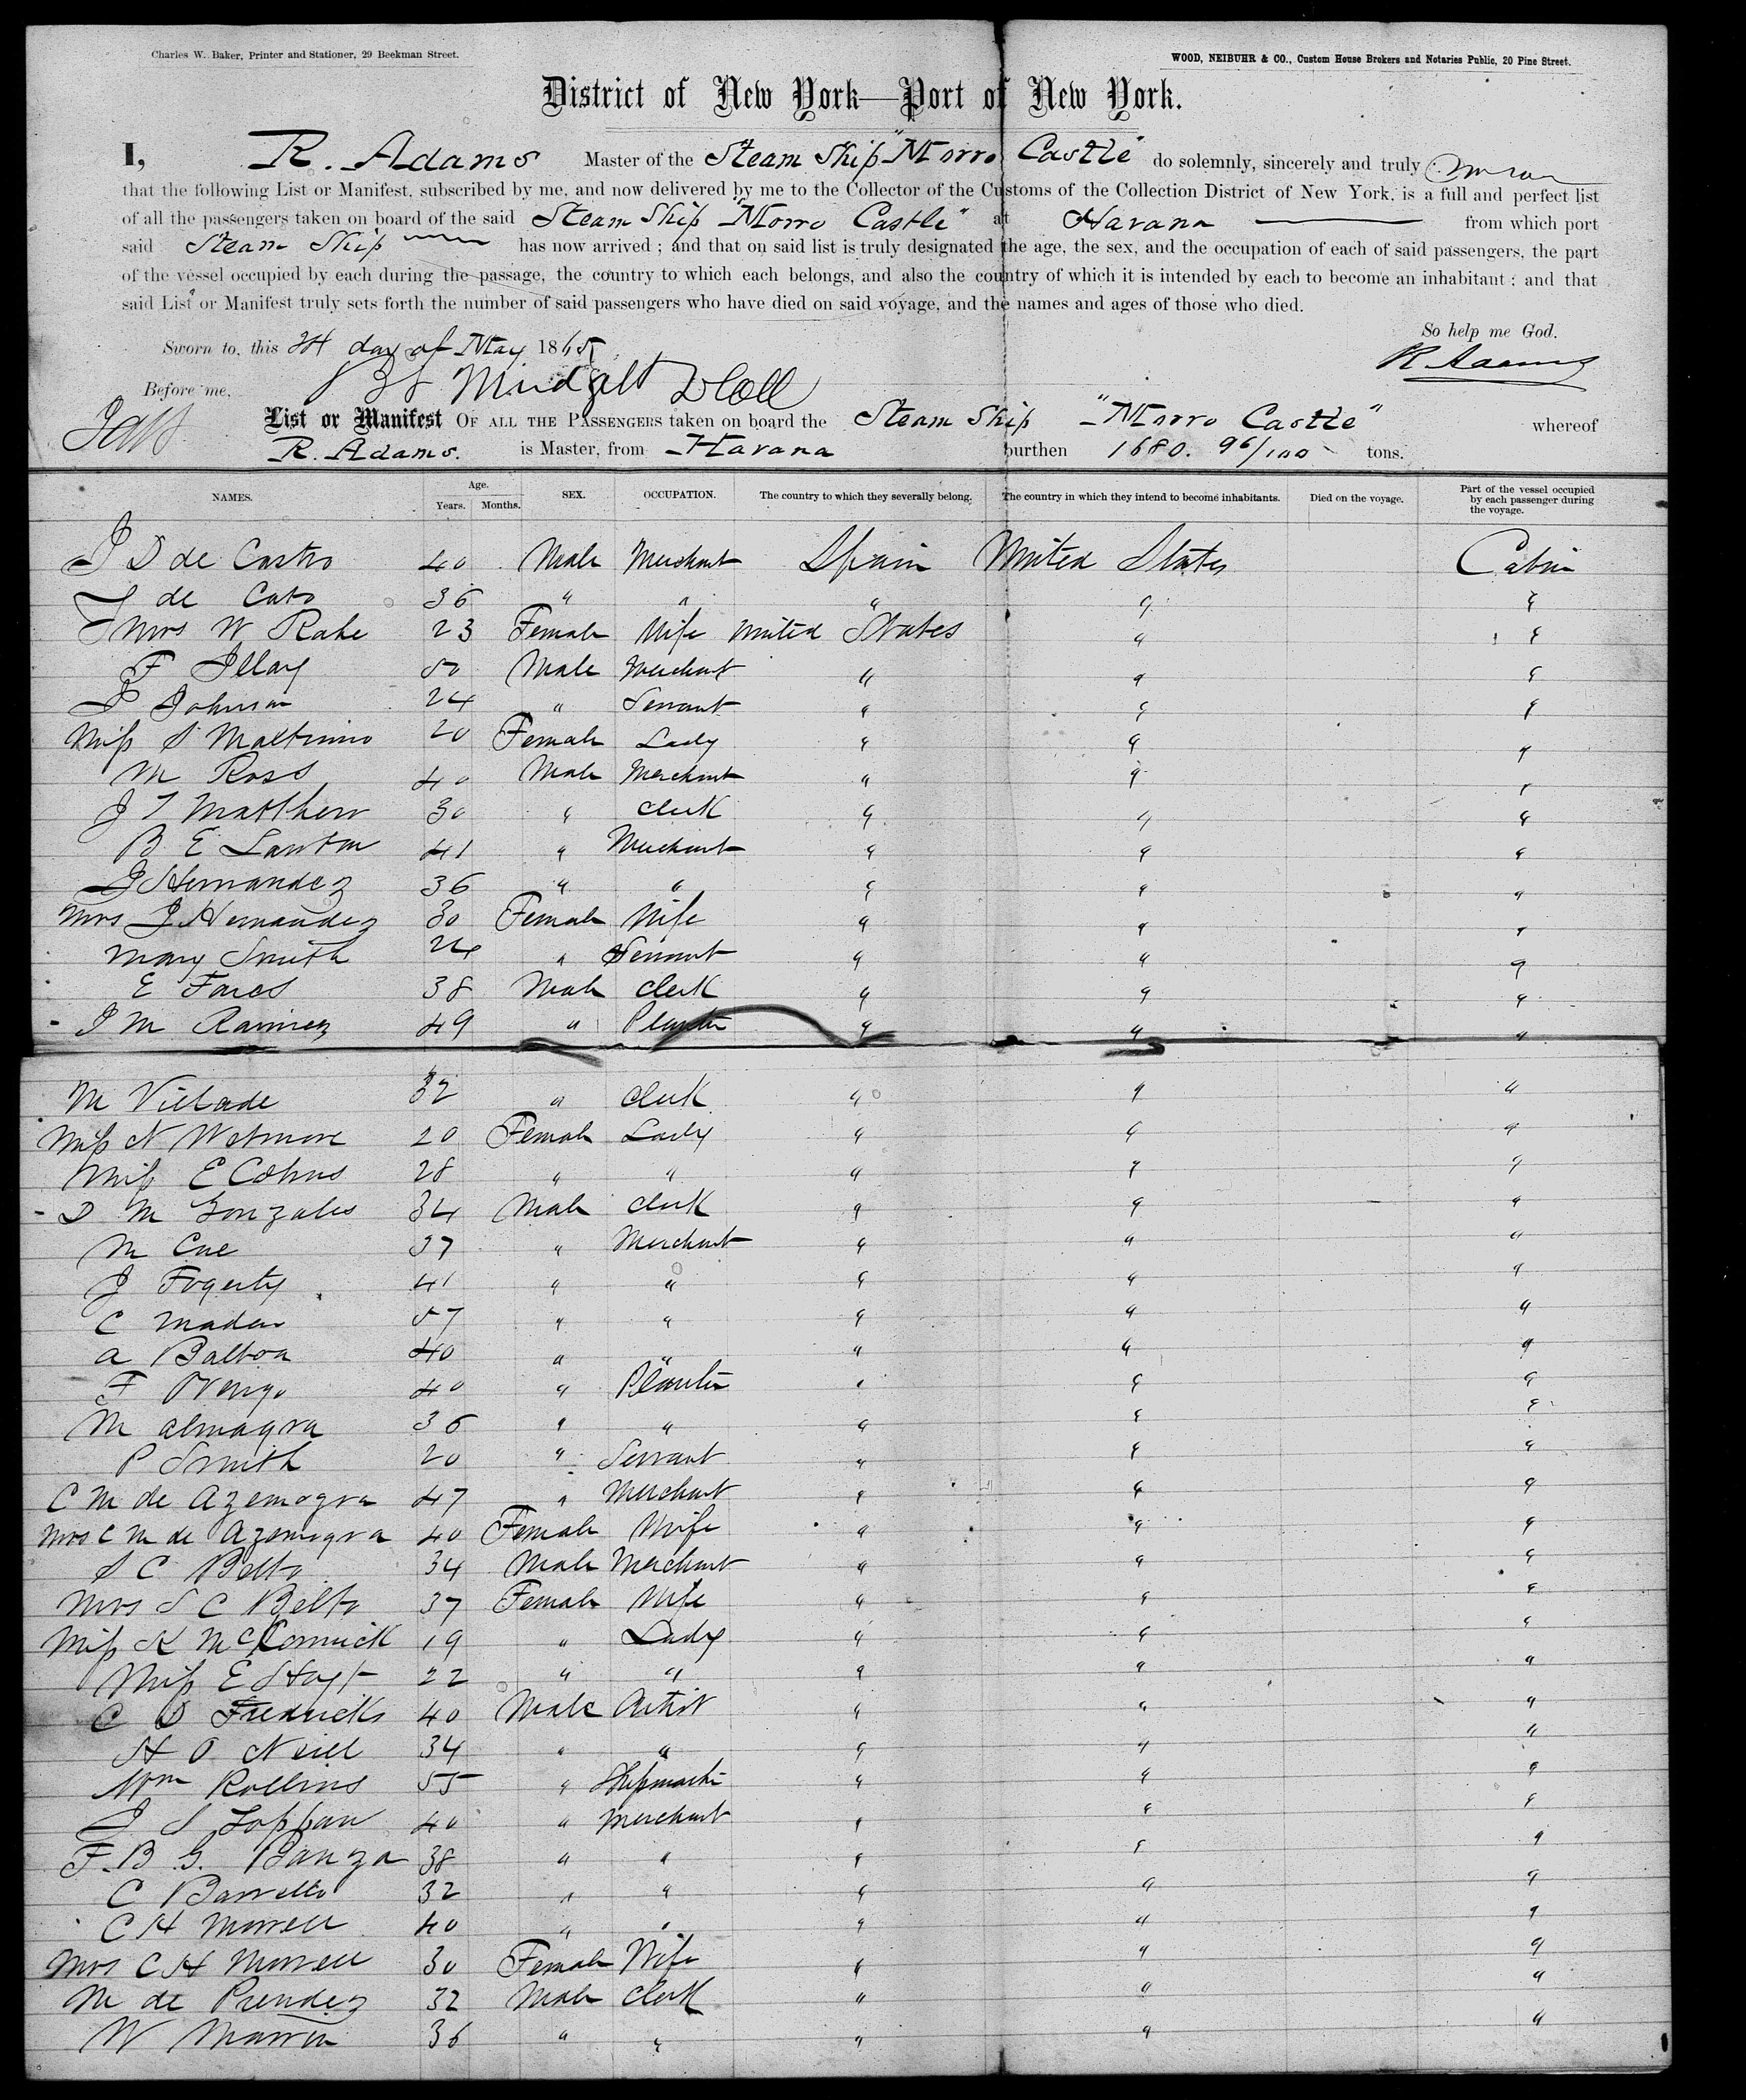 Charles W. Baker, Printer and Stationer, 29 Beekman Street.
WOOD, NEIBUHR & CO., Custom House Brokers and Notaries Public, 20 Pine Street.
District of New York—Port of New York.
I, R. Adams Master of the Steam Ship "Morro Castle" do solemnly, sincerely and truly swear
that the following List or Manifest, subscribed by me, and now delivered by me to the Collector of the Customs of the Collection District of New York, is a full and perfect list
of all the passengers taken on board of the said Steam Ship "Morro Castle" at Havana from which port
said Steam Ship has now arrived ; and that on said list is truly designated the age, the sex, and the occupation of each of said passengers, the part
of the vessel occupied by each during the passage, the country to which each belongs, and also the country of which it is intended by each to become an inhabitant ; and that
said List or Manifest truly sets forth the number of said passengers who have died on said voyage, and the names and ages of those who died.
So help me God.
Sworn to, this day of May 1865
R Adams
Before me,
List or Manifest OF ALL THE PASSENGERS taken on board the Steam Ship "Morro Castle" whereof
R. Adams. is Master, from Havana burthen 1680. 96/100 tons.
NAMES. Age. Years. Months. SEX. OCCUPATION. The country to which they severally belong. The country in which they intend to become inhabitants. Died on the voyage. Part of the vessel occupied by each passenger during the voyage.
J D de Castro 40 Male Merchant Spain United States Cabin
de 36 " " " " "
Mrs W Rahe 23 Female Wife United States " "
F 50 Male Merchant " " "
J Johnson 24 " Servant " " "
Miss S 20 Female Lady " " "
M Ross 40 Male Merchant " " "
J T Matthew 30 " Clerk " " "
B E Lawton 41 " Merchant " " "
J Hernandez 36 " " " " "
Mrs J Hernandez 30 Female Wife " " "
Mary Smith 24 " Servant " " "
E Fares 38 Male Clerk " " "
J M Ramirez 49 " Planter " " "
M Villade 32 " Clerk " " "
Miss N Wetmore 20 Female Lady " " "
Miss E 28 " " " " "
D M Gonzales 34 Male Clerk " " "
M Cue 37 " Merchant " " "
J Fogerty 41 " " " " "
C Madan 57 " " " " "
A Balboa 40 " " " " "
F 40 " Planter " " "
M Almagra 36 " " " " "
P Smith 20 " Servant " " "
C M de Azemogra 47 " Merchant " " "
Mrs C M de Azemogra 40 Female Wife " " "
S C Belto 34 Male Merchant " " "
Mrs S C Belto 37 Female Wife " " "
Miss K McCormick 19 " Lady " " "
Miss E Hoyt 22 " " " " "
C D Fredricks 40 Male Artist " " "
H O Neill 34 " " " " "
Wm Rollins 55 " " " "
J S Toppan 40 " Merchant " " "
F. B G. Banza 38 " " " " "
C Barretto 32 " " " " "
C H Morrell 40 " " " " "
Mrs C H Morrell 30 Female Wife " " "
M de Prendez 32 Male Clerk " " "
W 36 " " " " "